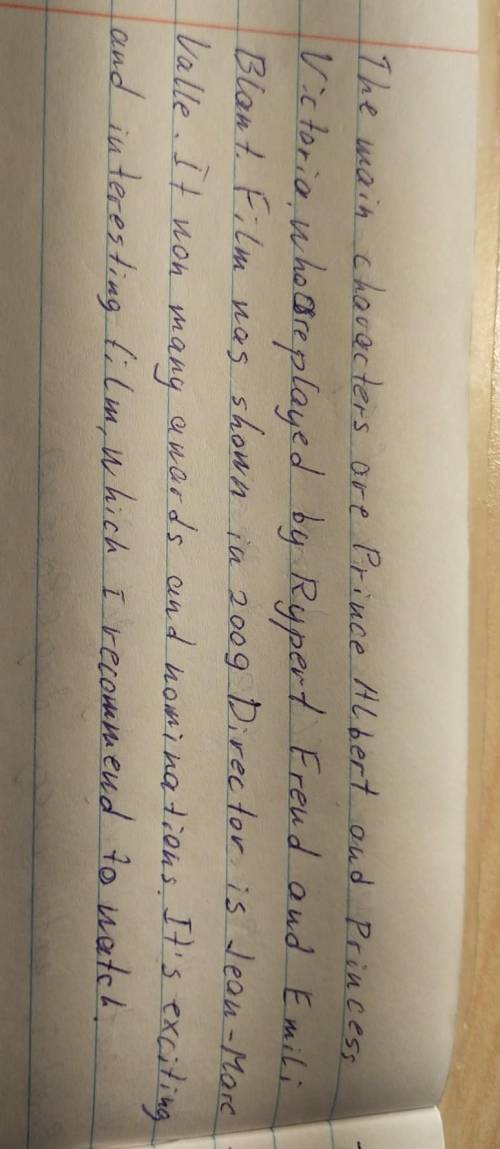 The main characters are Prince Albert and Princess
Victoria, who are played by Rypert Freud and Emili
Blant. Film was shown in 2009 Director is Jean-Marc
Valle. It won many awards and nominations. It's exciting
and interesting film, which I recommend to watch.